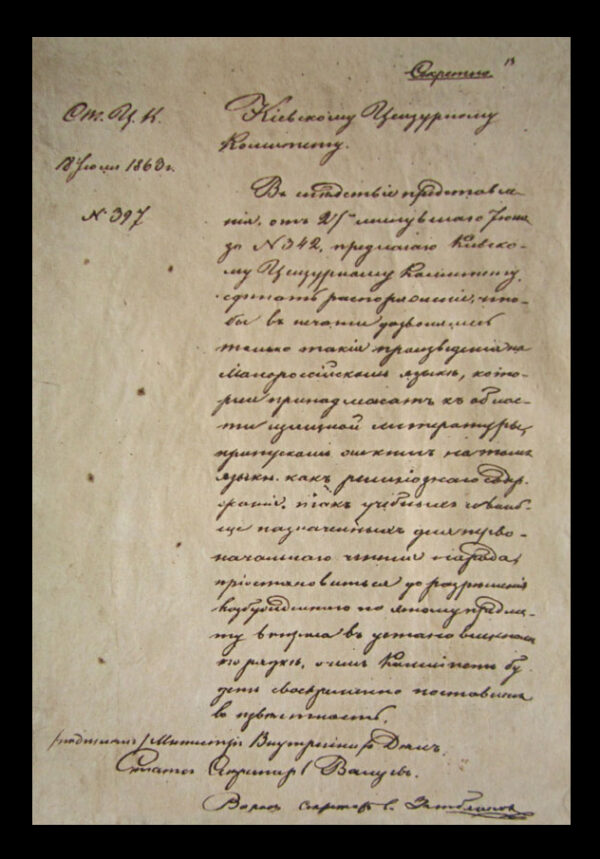 Секретно
От. Ц. К.
18 Июля 1863 г.
№ 397
Кіевскому Цензурному
Комитету.
Въ слѣдствіе представле-
нія, отъ 27го минувшаго Іюня
за № 342, предлагаю Кіевско-
му Цензурному Комитету
сдѣлать распоряженіе, что-
бы въ печати дозволялись
только такія произведенія на
Малороссійскомъ языкѣ, кото-
рыя принадлежатъ къ облас-
ти изящной литературы;
пропускомъ же книгъ на томъ
языкѣ какъ религіознаго содер-
жанія, такъ учебныхъ и вооб-
ще назначенныхъ для перво-
начальнаго чтенія народа,
пріостановиться до разрѣшенія
возбужденнаго по этому предме-
ту вопроса въ установленномъ
порядкѣ, о чемъ Комитетъ бу-
детъ своевременно поставленъ
въ извѣстность.
/подписалъ/ Министръ Внутреннихъ Дѣлъ,
Статсъ Секретарь Валуевъ.
секретарь